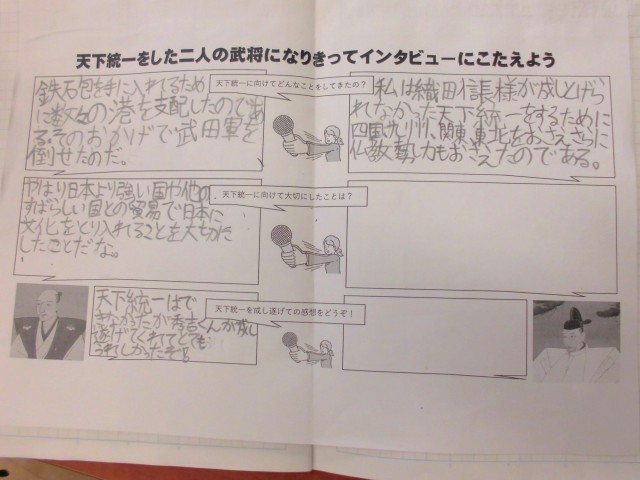 天下統一をした二人の武将になりきってインタビューにこたえよう
天下統一に向けてどんなことをしてきたの？
鉄石包を手に入れてるため
に数々の港を支配したのであ
る。そのおかげで武田軍を
倒せたのだ。
私は織田信長様が成しとげら
れなかった天下統一をするために
四国、九州、関東、東北をおさえ、さらに
仏教勢力もおさえたのである。
天下統一に向けて大切にしたことは？
やはり日本より強い国や他の
すばらしい国との貿易で日本に
文化をとり入れてることを大切に
したことだな。
天下統一を成し遂げての感想をどうぞ！
天下統一はで
きなかったが秀吉くんが成し
遂げてくれててとても
うれしかったぞ